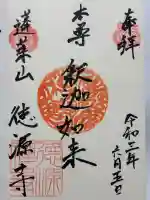 奉拝
令和二年
六月五日
本尊
釈迦如来
蓬莱山
徳源寺